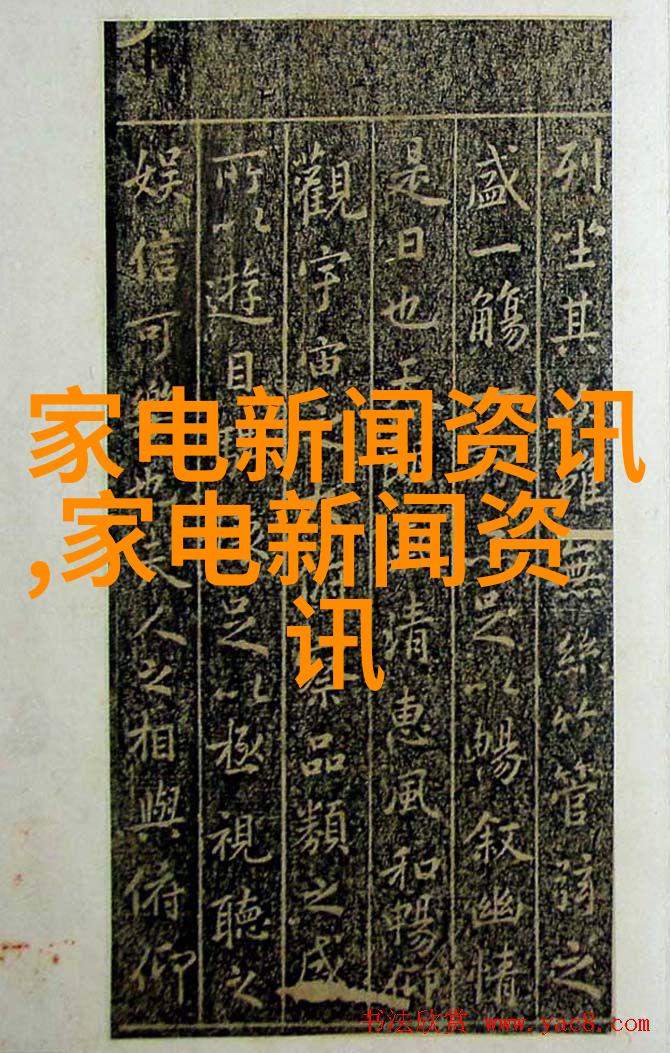 列坐其雖無絲竹管弦之
盛一觴足以暢叙幽情
是日也天清惠風和暢仰
觀宇宙品類之盛
所以遊目懷足以極視聽之
娱信可樂也夫人之相與俯仰
家电新闻资讯
,家电新闻资
讯
书法欣赏 www.yac8.com